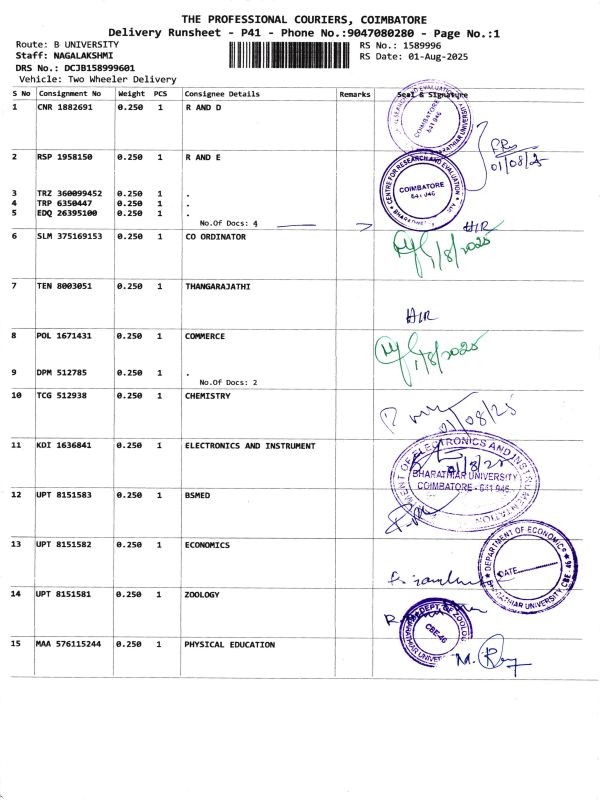 THE PROFESSIONAL COURIERS, COIMBATORE
Delivery Runsheet - P41 - Phone No.:9047080280 - Page No.:1
Route: B UNIVERSITY RS No.: 1589996
Staff: NAGALAKSHMI RS Date: 01-Aug-2025
DRS No.: DCJB158999601
Vehicle: Two Wheeler Delivery
S No Consignment No Weight PCS Consignee Details Remarks Seal & Signature
1 CNR 1882691 0.250 1 R AND D
COIMBATORE
641 046
01/08/25
2 RSP 1958150 0.250 1 R AND E
CENTRE FOR RESEARCH AND EVALUATION
COIMBATORE
641 046
3 TRZ 360099452 0.250 1 .
4 TRP 6350447 0.250 1 .
5 EDQ 26395100 0.250 1 .
No.Of Docs: 4
6 SLM 375169153 0.250 1 CO ORDINATOR
1/8/2025
7 TEN 8003051 0.250 1 THANGARAJATHI
8 POL 1671431 0.250 1 COMMERCE
1/8/2025
9 DPM 512785 0.250 1 .
No.Of Docs: 2
10 TCG 512938 0.250 1 CHEMISTRY
01/08/25
11 KDI 1636841 0.250 1 ELECTRONICS AND INSTRUMENT
DEPARTMENT OF ELECTRONICS AND INSTRUMENTATION
01/8/25
BHARATHIAR UNIVERSITY
COIMBATORE - 641 046
12 UPT 8151583 0.250 1 BSMED
13 UPT 8151582 0.250 1 ECONOMICS
DEPARTMENT OF ECONOMICS
DATE
BHARATHIAR UNIVERSITY, CBE-46
14 UPT 8151581 0.250 1 ZOOLOGY
DEPT. OF ZOOLOGY
CBE-46
BHARATHIAR UNIVERSITY
15 MAA 576115244 0.250 1 PHYSICAL EDUCATION